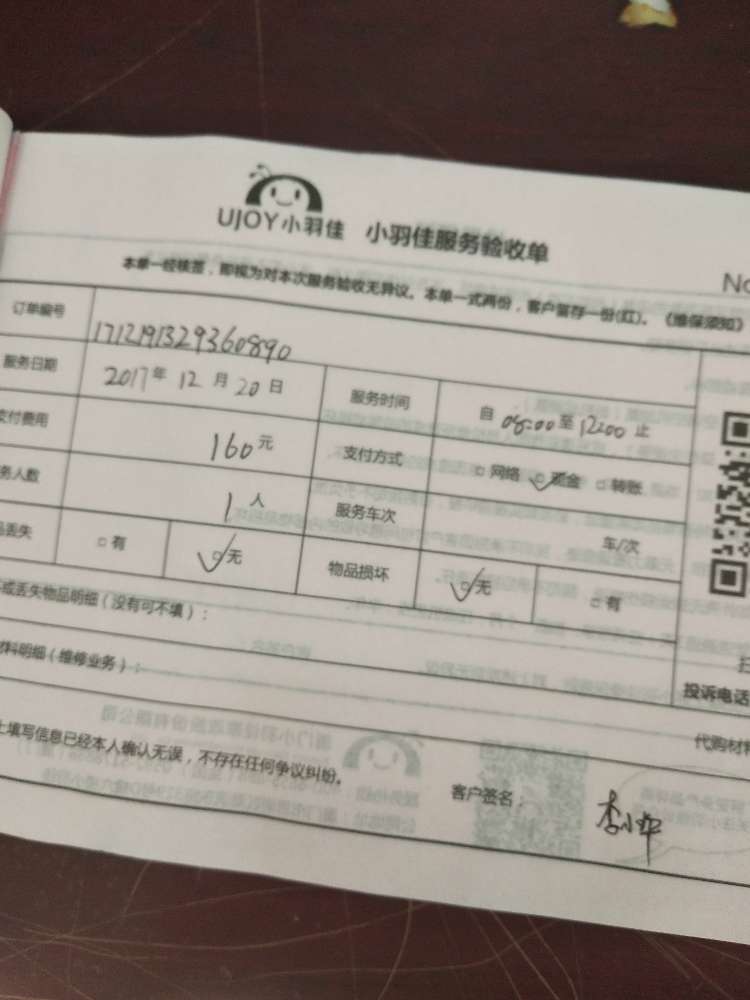 UJOY小羽佳 小羽佳服务验收单
No
本单一经核签，即视为对本次服务验收无异议。本单一式两份，客户留存一份(红)。《维保须知》
订单编号 17121913293360890
服务日期 2017年 12月 20日 服务时间 自 08:00 至 12:00 止
支付费用 160元 支付方式 □网络 ☑现金 □转账
务人数 1人 服务车次 车/次
品丢失 □有 ☑无 物品损坏 ☑无 □有
或丢失物品明细（没有可不填）：
材料明细（维修业务）：
投诉电话
代购材料
上填写信息已经本人确认无误，不存在任何争议纠纷。 客户签名：